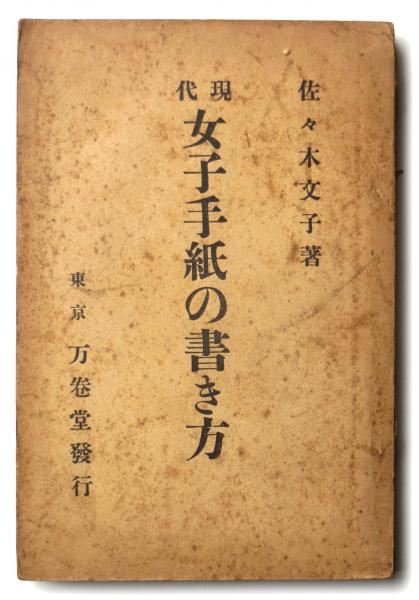 佐々木文子著
現代
女子手紙の書き方
東京 万卷堂發行